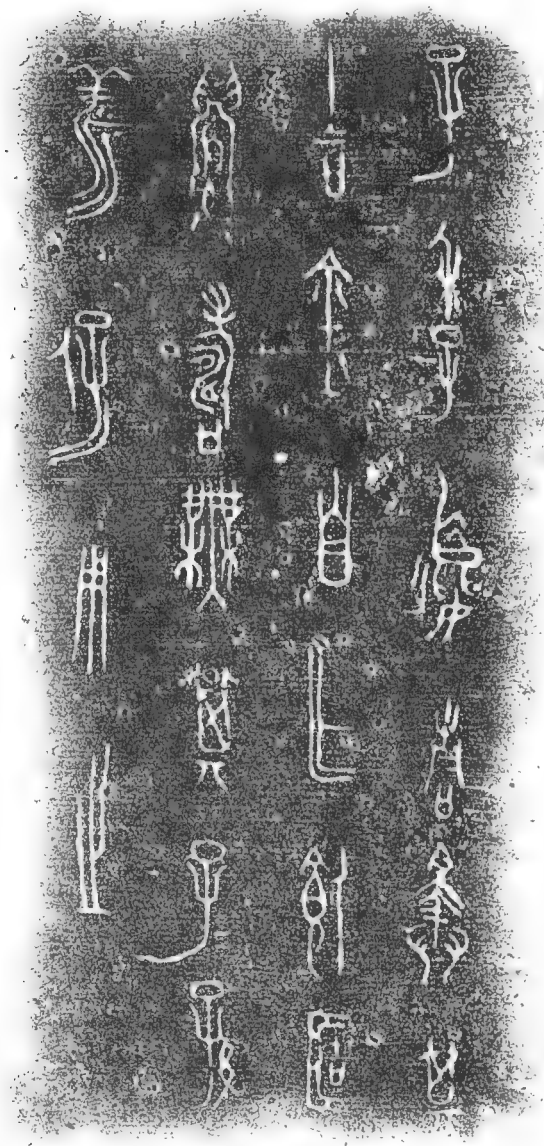 子季嬴青擇其
吉金自乍飤𠤳
眉壽無期子孫
羕保用之